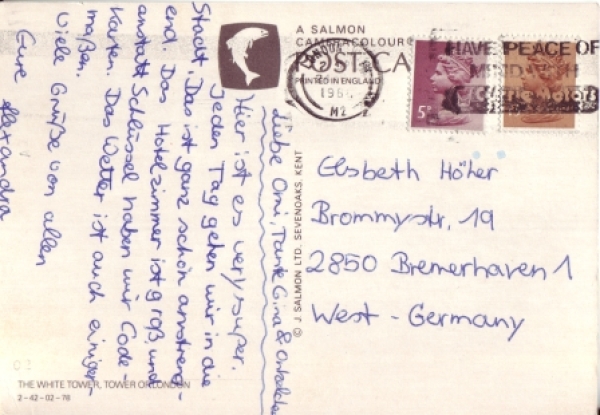 A SALMON
CAMERACOLOUR
POSTCA
PRINTED IN ENGLAND
HAVE PEACE OF
LONDON
198
M2
5P
Liebe Omi, Tante Gina &
Hier ist es very super.
Jeden Tag gehen wir in die
Stadt. Das ist ganz schön anstreng-
end. Das Hotelzimmer ist groß und
anstatt Schlüssel haben wir Code-
Karten. Das Wetter ist auch einiger-
maßen.
Viele Grüße von allen
Eure Alexandra
© J SALMON LTD. SEVENOAKS. KENT
Elsbeth Höher
Brommystr. 19
2850 Bremerhaven 1
West - Germany
THE WHITE TOWER, TOWER OF LONDON
2-42-02-78